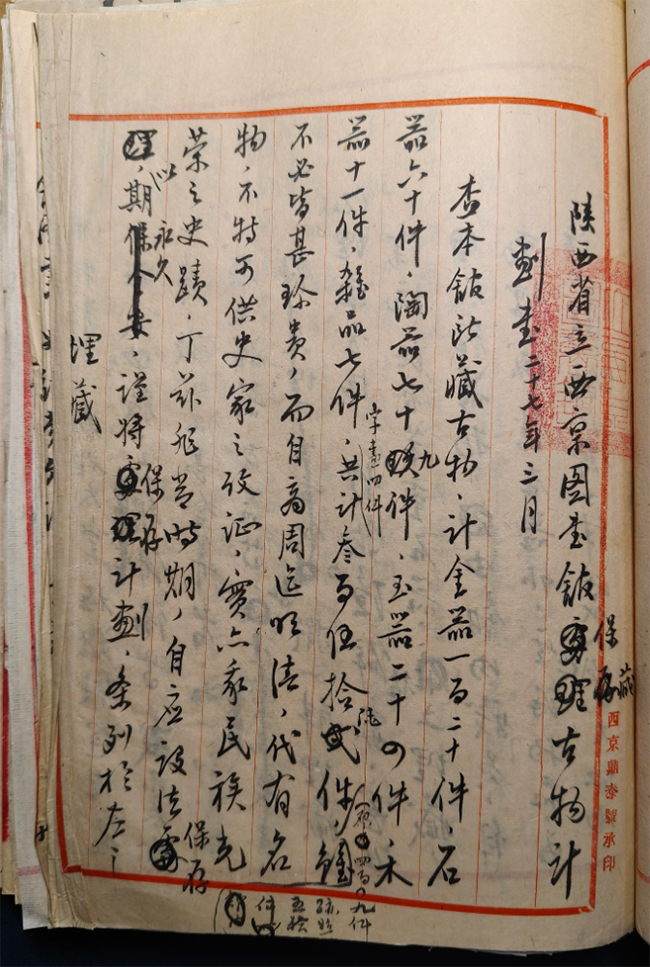 陕西省立西京图书馆保存古物计
划书二十七年三月
查本馆所藏古物,计金器一百二十件,石
器六十件,陶器七十九件,玉器二十四件,禾
器十一件,杂品七件,字画四件,共计叁百伍拾件,
不必皆甚珍贵,而自商周迄明清,代有名
物,不特可供史家之考证,实亦我民族光
荣之史蹟,丁兹非常时期,自应设法保存
以期永久,谨将保存计划,条列于左:
埋藏
西京鼎泰丰承印